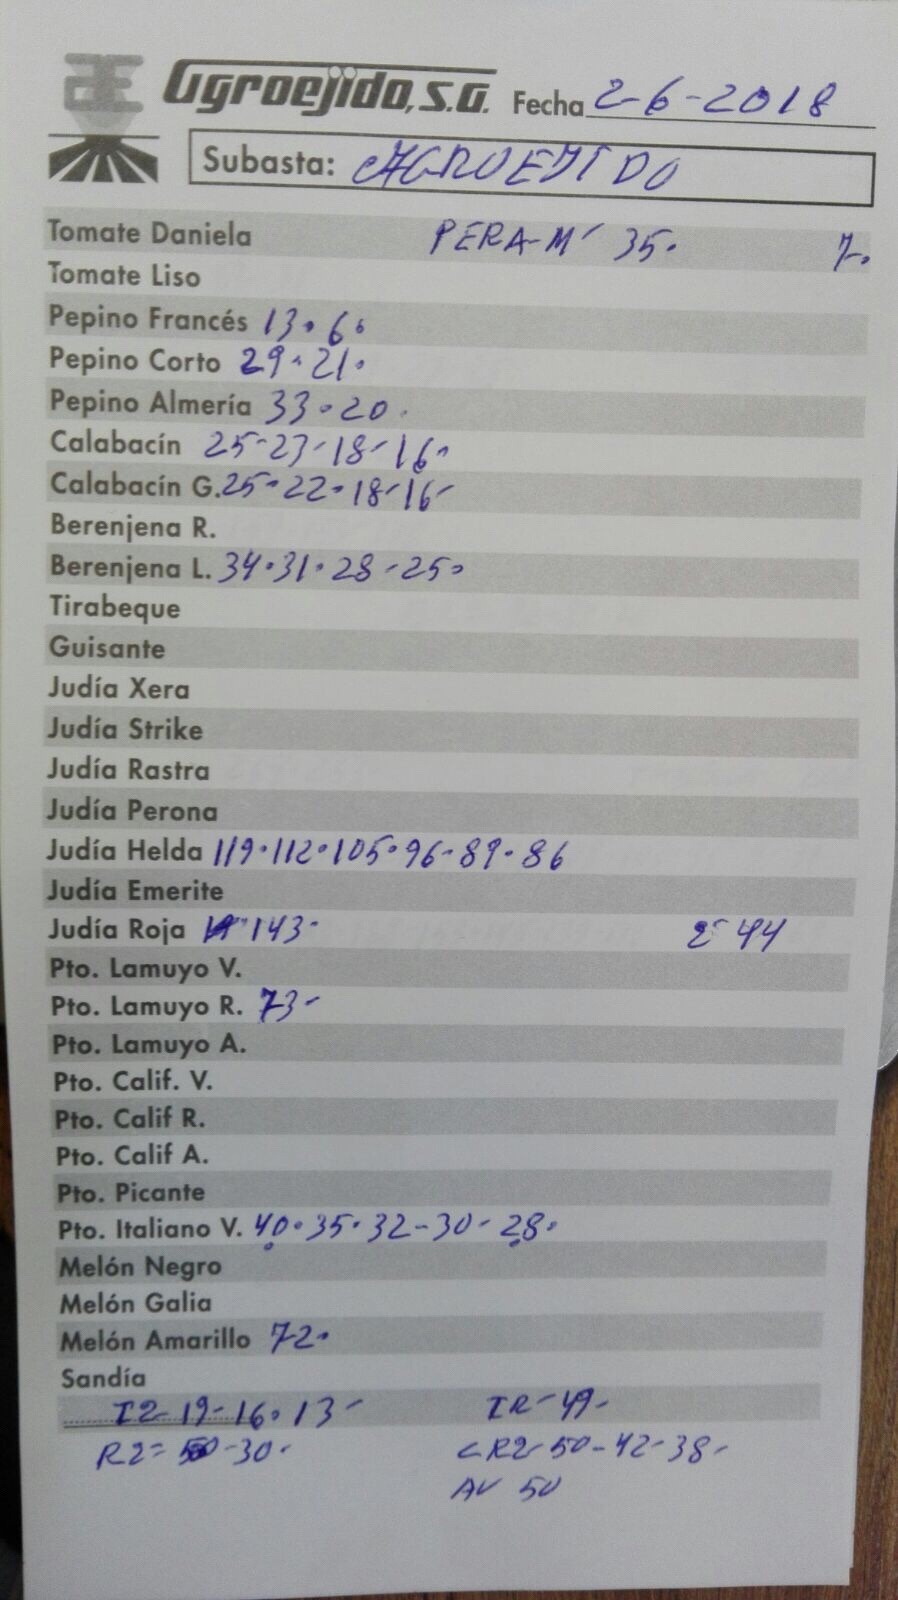 Agroejido, S.A. Fecha 2-6-2018
Subasta: AGROEJIDO
Tomate Daniela PERA-M- 35. 7.
Tomate Liso
Pepino Francés 13.6.
Pepino Corto 29.21.
Pepino Almería 33.20.
Calabacín 25-23-18-16.
Calabacín G. 25.22.18-16-
Berenjena R.
Berenjena L. 34.31.28-25.
Tirabeque
Guisante
Judía Xera
Judía Strike
Judía Rastra
Judía Perona
Judía Helda 119.112.105.96-89.86
Judía Emerite
Judía Roja 143- 2- 44
Pto. Lamuyo V.
Pto. Lamuyo R. 73-
Pto. Lamuyo A.
Pto. Calif. V.
Pto. Calif R.
Pto. Calif A.
Pto. Picante
Pto. Italiano V. 40.35.32-30-28.
Melón Negro
Melón Galia
Melón Amarillo 72.
Sandía
I2-19-16.13- IR-49-
R2= 50-30- CR2-50-42-38-
AV 50